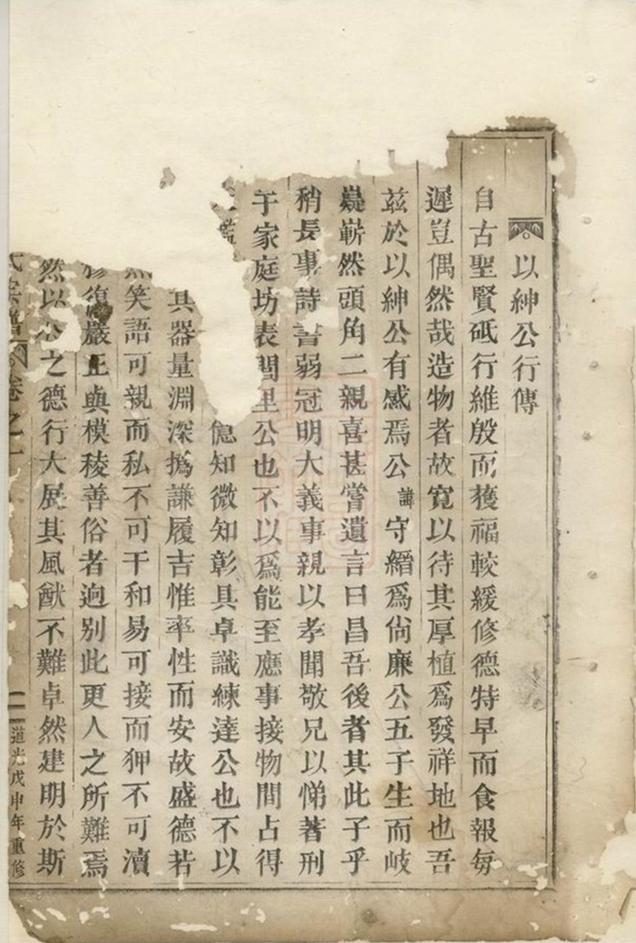 以紳公行傳
自古聖賢砥行維殷而獲福較緩修德特早而食報每
遲豈偶然哉造物者故寛以待其厚植爲發祥地也吾
兹於以紳公有感焉公諱守縉爲尙廉公五子生而岐
嶷嶄然頭角二親喜甚嘗遺言曰昌吾後者其此子乎
稍長事詩書弱冠明大義事親以孝聞敬兄以悌著刑
于家庭坊表閭里公也不以爲能至應事接物間占得
知微知彰具卓識練達公也不以
其器量淵深撝謙履吉惟率性而安故盛德若
笑語可親而私不可干和易可接而狎不可瀆
嚴正與模稜善俗者逈别此更人之所難焉
然以公之德行大展其風猷不難卓然建明於斯
氏宗譜 卷之一 二 道光戊申年重修